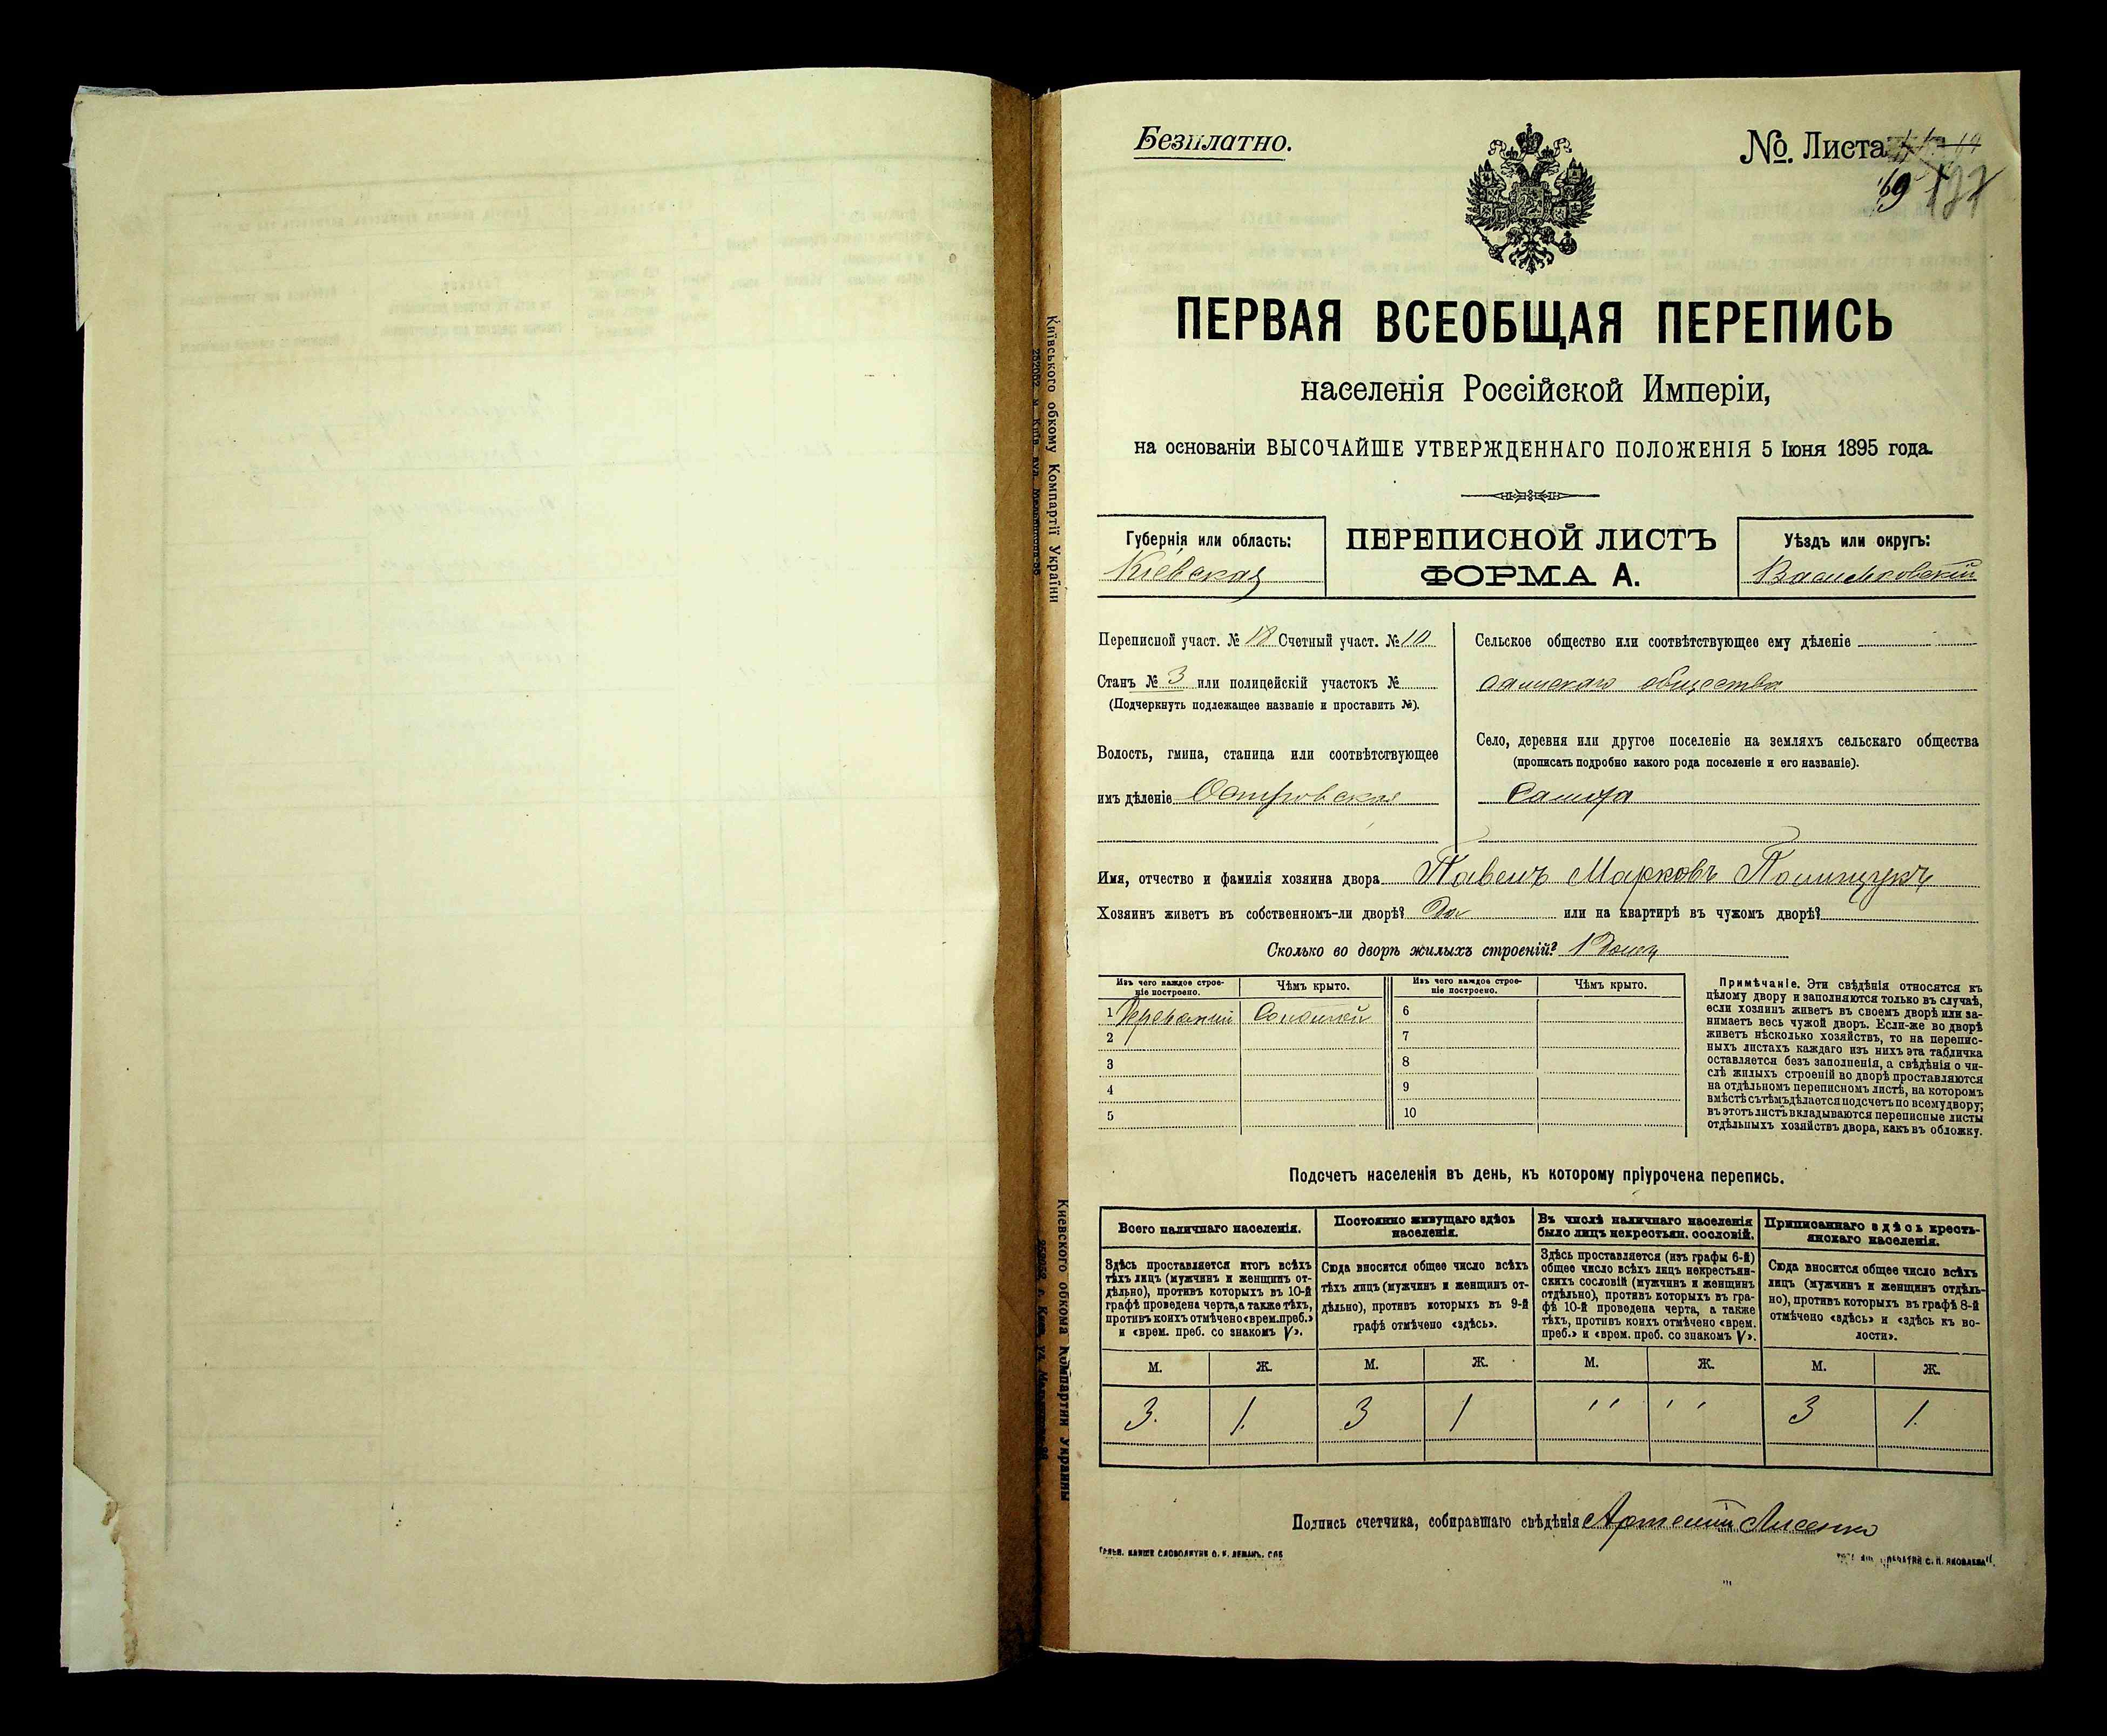 Безплатно.
№. Листа
69 127
ПЕРВАЯ ВСЕОБЩАЯ ПЕРЕПИСЬ
населенія Россійской Имперіи,
на основаніи ВЫСОЧАЙШЕ УТВЕРЖДЕННАГО ПОЛОЖЕНІЯ 5 Іюня 1895 года.
Губернія или область:
Кіевская
ПЕРЕПИСНОЙ ЛИСТЪ
ФОРМА А.
Уѣздъ или округъ:
Васильковскій
Переписной участ. № 18 Счетный участ. № 10
Станъ № 3 или полицейскій участокъ №
(Подчеркнуть подлежащее названіе и проставить №).
Волость, гмина, станица или соотвѣтствующее
имъ дѣленіе Островская
Сельское общество или соотвѣтствующее ему дѣленіе
общества
Село, деревня или другое поселеніе на земляхъ сельскаго общества
(прописать подробно какого рода поселеніе и его названіе).
Имя, отчество и фамилія хозяина двора Павелъ Марковъ Полищукъ
Хозяинъ живетъ въ собственномъ-ли дворѣ? Да или на квартирѣ въ чужомъ дворѣ?
Сколько во дворѣ жилыхъ строеній? 1 Домъ
Изъ чего каждое строеніе построено.
Чѣмъ крыто.
Изъ чего каждое строеніе построено.
Чѣмъ крыто.
1 Деревяный Соломой
2
3
4
5
6
7
8
9
10
Примѣчаніе. Эти свѣдѣнія относятся къ
цѣлому двору и заполняются только въ случаѣ,
если хозяинъ живетъ въ своемъ дворѣ или за-
нимаетъ весь чужой дворъ. Если-же во дворѣ
живетъ нѣсколько хозяйствъ, то на перепис-
ныхъ листахъ каждаго изъ нихъ эта табличка
оставляется безъ заполненія, а свѣдѣнія о чи-
слѣ жилыхъ строеній во дворѣ проставляются
на отдѣльномъ переписномъ листѣ, на которомъ
вмѣстѣ съ тѣмъ дѣлается подсчетъ по всему двору;
въ этотъ листъ вкладываются переписные листы
отдѣльныхъ хозяйствъ двора, какъ въ обложку.
Подсчетъ населенія въ день, къ которому пріурочена перепись.
Всего наличнаго населенія.
Здѣсь проставляется итогъ всѣхъ
тѣхъ лицъ (мужчинъ и женщинъ от-
дѣльно), противъ которыхъ въ 10-й
графѣ проведена черта, а также тѣхъ,
противъ коихъ отмѣчено «врем. преб.»
и «врем. преб. со знакомъ V».
Постоянно живущаго здѣсь
населенія.
Сюда вносится общее число всѣхъ
тѣхъ лицъ (мужчинъ и женщинъ от-
дѣльно), противъ которыхъ въ 9-й
графѣ отмѣчено «здѣсь».
Въ числѣ наличнаго населенія
было лицъ некрестьян. сословій.
Здѣсь проставляется (изъ графы 6-й)
общее число всѣхъ лицъ некрестьян-
скихъ сословій (мужчинъ и женщинъ
отдѣльно), противъ которыхъ въ гра-
фѣ 10-й проведена черта, а также
тѣхъ, противъ коихъ отмѣчено «врем.
преб.» и «врем. преб. со знакомъ V».
Приписаннаго здѣсь кресть-
янскаго населенія.
Сюда вносится общее число всѣхъ
лицъ (мужчинъ и женщинъ отдѣль-
но), противъ которыхъ въ графѣ 8-й
отмѣчено «здѣсь» и «здѣсь къ во-
лости».
М. Ж. М. Ж. М. Ж. М. Ж.
3. 1. 3 1 " " 3 1.
Подпись счетчика, собиравшаго свѣдѣнія Артемій Лисенко
Київського обкому Компартії України
Киевского обкома Компартии Украины